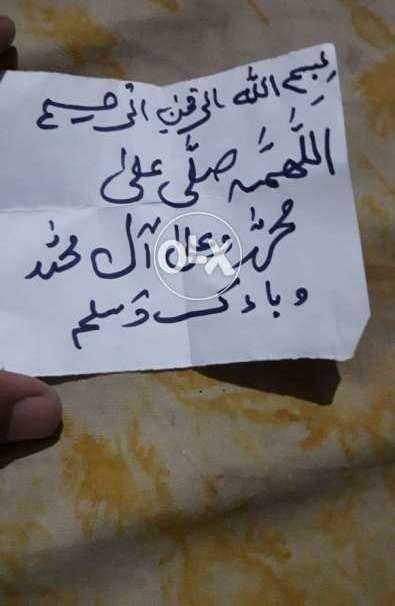 بِسمِ الله الرحمٰنِ الرحیم
اَللَّھُمَّہ صَلَّی علیٰ
محمَّدٍ وعلیٰ آل محمَّد
وبارک وَسلم
OLX